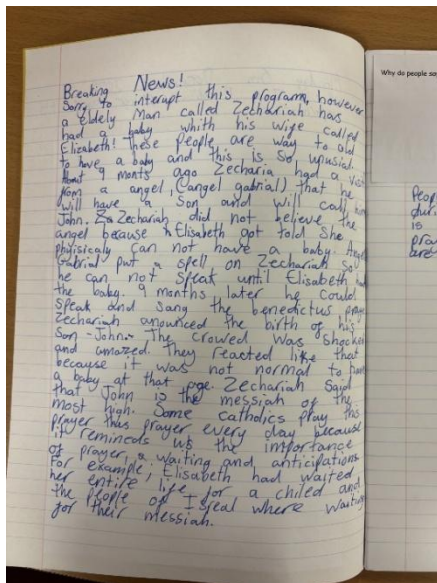 Breaking News!
Sorry to interupt this programe, however
a eldely man called Zechariah has
had a baby whith his wife called
Elizabeth! These people are way to old
to have a baby and this is so upusial.
About 9 monts ago Zecharia had a visit
from a angel, (angel gabrial) that he
will have a son and will call him
John. Zechariah did not believe the
angel because Elisabeth got told she
phisicaly can not have a baby. Angel
Gabrial put a spell on Zechariah so
he can not speak until Elisabeth had
the baby. 9 months later he could
speak and sang the benedictus prayer
Zechariah anounced the birth of his
Son - John. The crowed was shocken
and amazed. They reacted like that
because it was not normal to have
a baby at that age. Zechariah said
that John is the messiah of the
most high. Some catholics pray this
prayer thus prayer every day because
it remineds us the importance
of prayer, a waiting and anticipations
For example; Elisabeth had waited
her entire life for a chiled and
the people of Isreal where waiting
for their messiah.
Why do people say
Peop
dur
is
pra
are